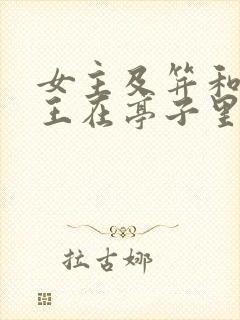 女主及笄和
王在亭子里
拉古娜